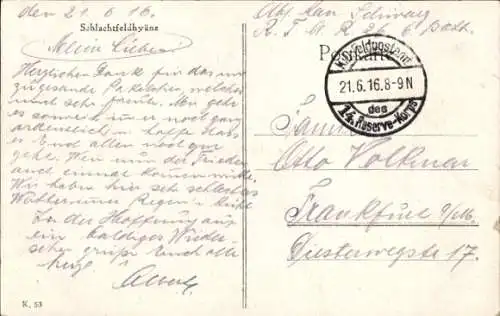 den 21.6.16.
Schlachtfeldhyäne
Meine Lieben
Herzlichen Dank für das mir
zugesande Paketchen, welches
mich sehr freute. Mir geht
es soweit immer noch ganz
ordentlich u. hoffe dass
es Euch allen noch gut
geht. Wenn nur der Frieden
auch einmal kommen würde.
Wir haben hier sehr schlechtes
Wetter immer Regen u. kühl
In der Hoffnung auf
ein baldiges Wieder-
sehen grüßt Euch alle
herzl.
Albert
K. 53
Abs. Kan.
R. F. A. R. 6. Batt.
Postkarte
K.D. Feldpostamt
21.6.16.8-9N
des
14. Reserve-Korps
Familie
Otto Volkmar
Frankfurt a/M.
Diesterwegstr 17.